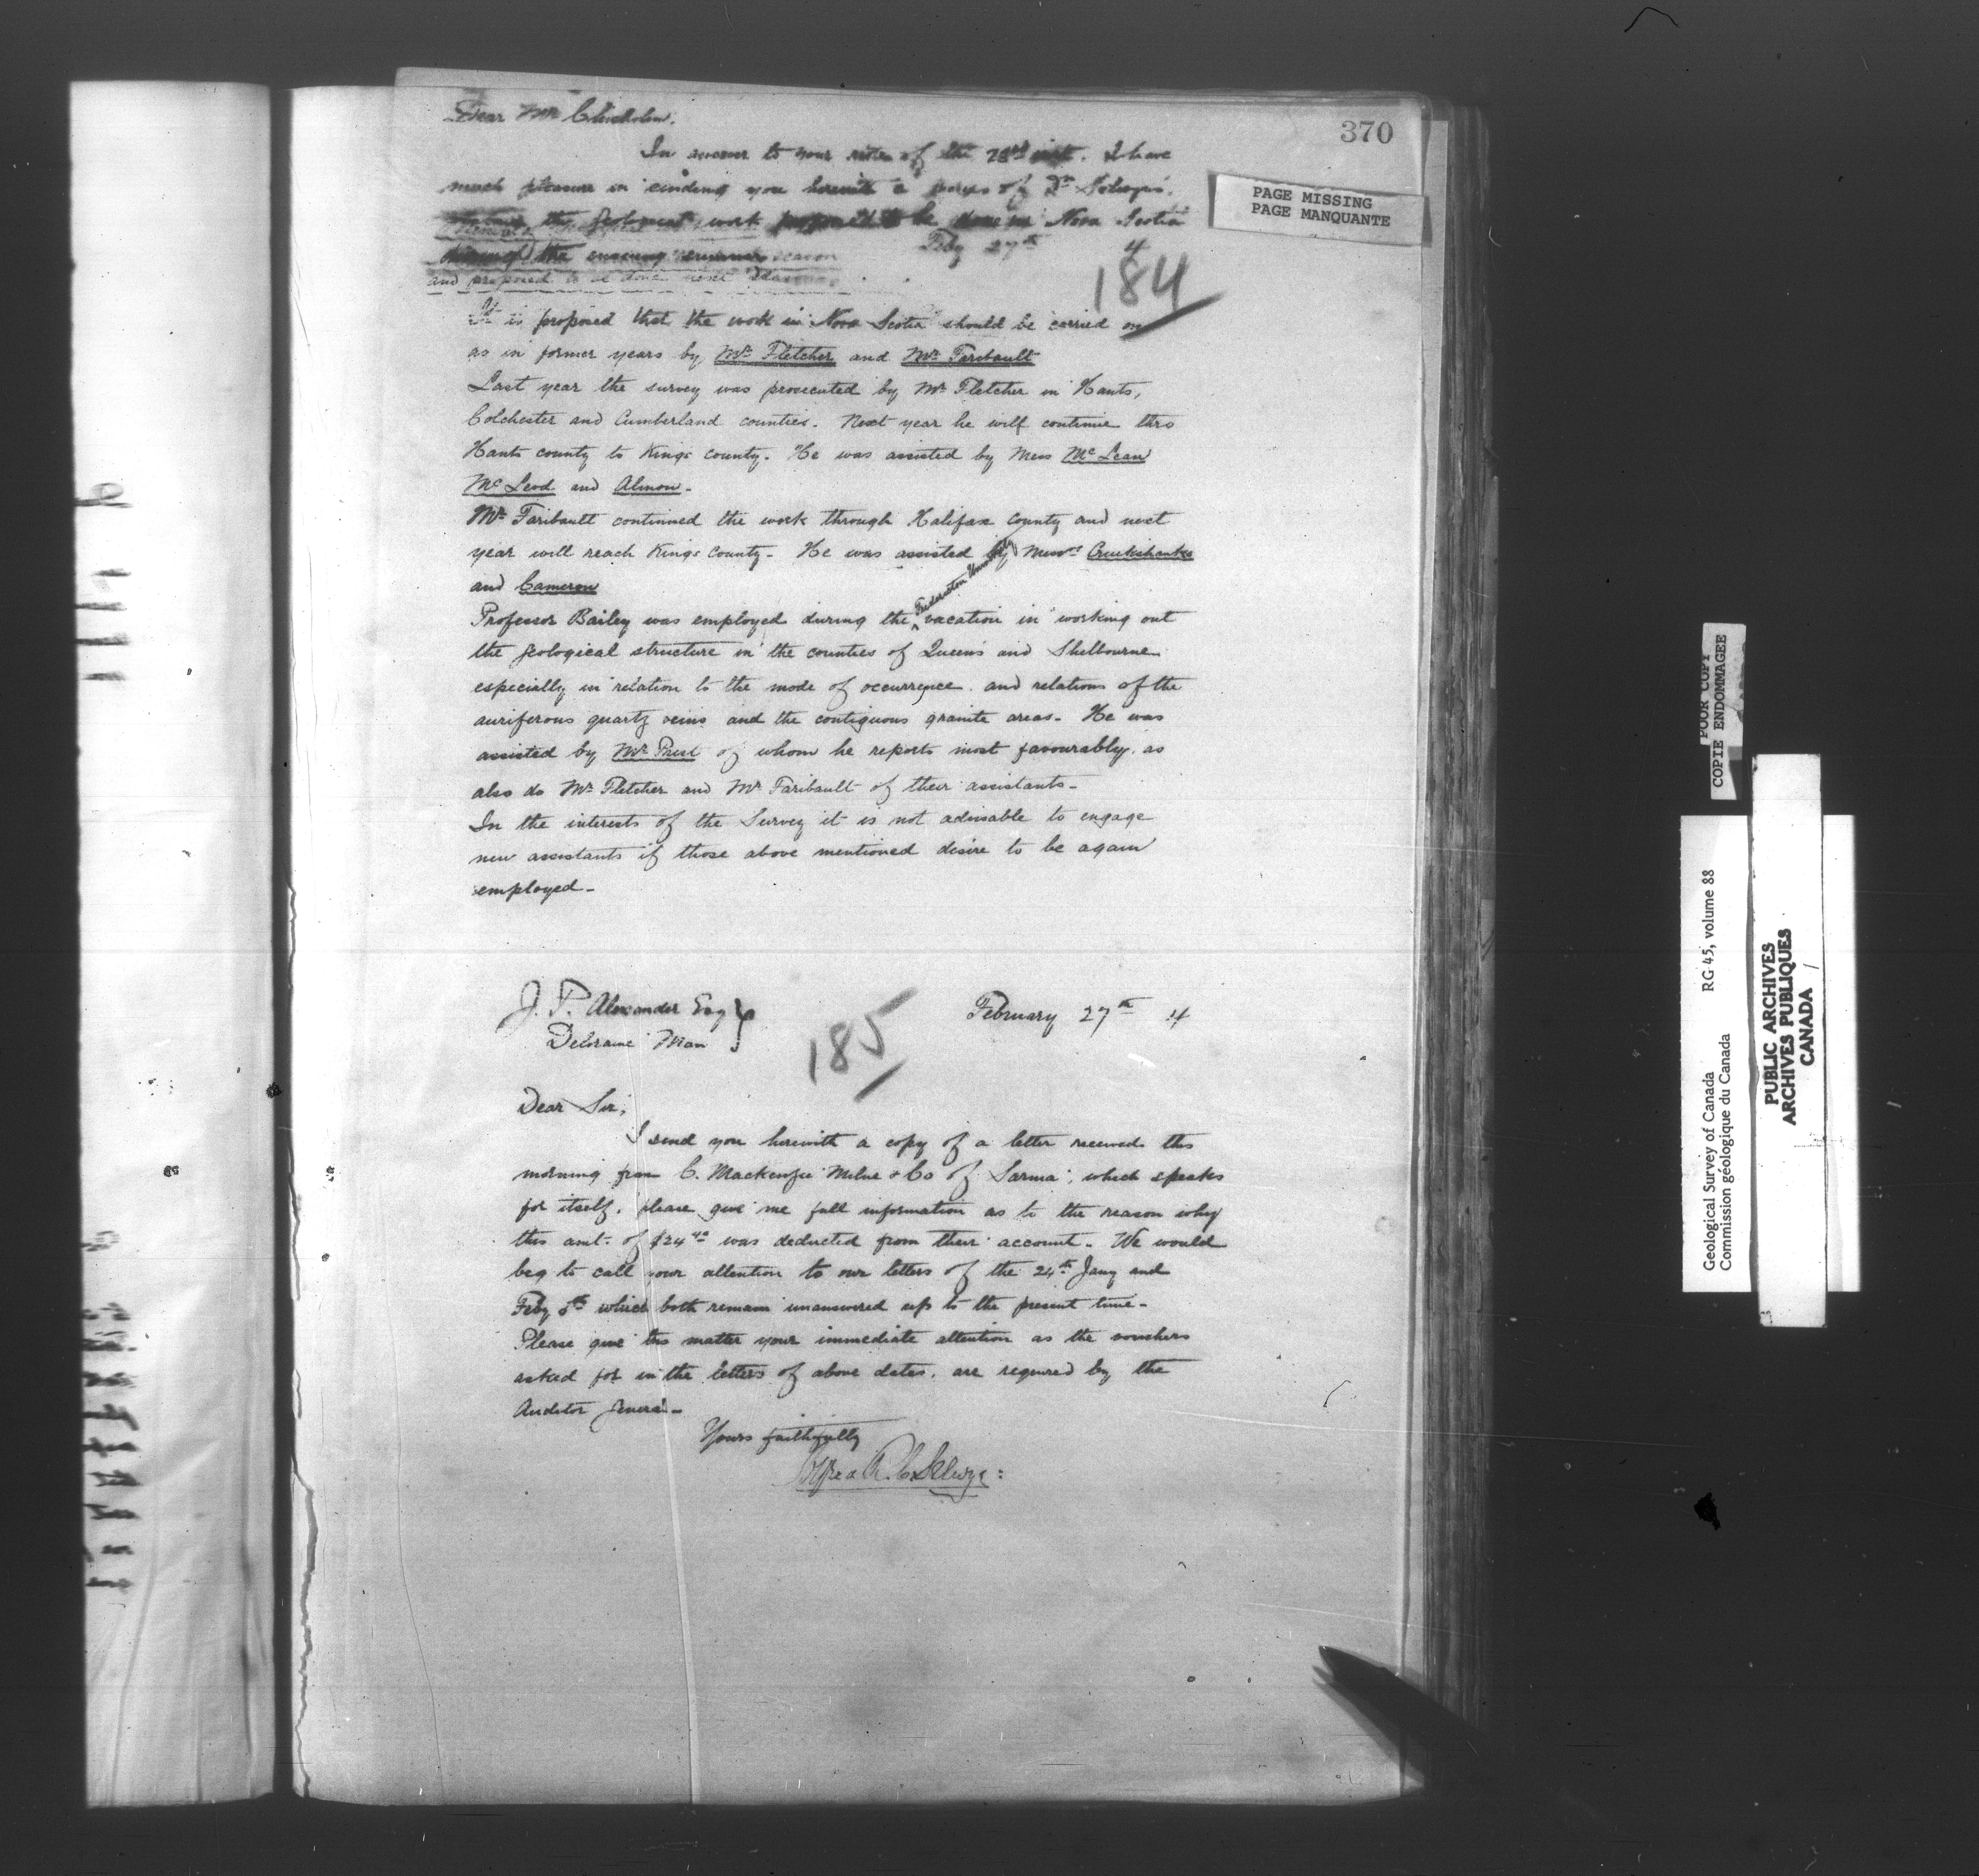 370
PAGE MISSING
PAGE MANQUANTE
Dear Mr Chisholm.
In answer to your note of the 28th inst. I have
much pleasure in sending you herewith a of Dr Selwyn's.
the geological work proposed to be done in Nova Scotia
during the ensuing summer season
Feby 27th 4
and proposed to be done next season.
184
It is proposed that the work in Nova Scotia should be carried on
as in former years by Mr Fletcher and Mr Faribault
Last year the survey was prosecuted by Mr Fletcher in Hants,
Colchester and Cumberland counties. Next year he will continue thro
Hants county to Kings County. He was assisted by Mess McLean
McLeod and Almon.
Mr Faribault continued the work through Halifax County and next
year will reach Kings County. He was assisted by Messrs Cruikshanks
and Cameron
Professor Bailey was employed during the Fredericton University vacation in working out
the geological structure in the counties of Queens and Shelbourne
especially in relation to the mode of occurrence and relations of the
auriferous quartz veins and the contiguous granite areas. He was
assisted by Mr Prest of whom he reports most favourably, as
also do Mr Fletcher and Mr Faribault of their assistants.
In the interests of the Survey it is not advisable to engage
new assistants if those above mentioned desire to be again
employed.
J. P. Alexander Esq
Deloraine Man
185
February 27th 4
Dear Sir,
I send you herewith a copy of a letter received this
morning from C. Mackenzie Milne & Co of Sarnia, which speaks
for itself, please give me full information as to the reason why
this amt. of $24 40 was deducted from their account. We would
beg to call your attention to our letters of the 24th Jany and
Feby 8th which both remain unanswered up to the present time.
Please give this matter your immediate attention as the vouchers
asked for in the letters of above dates, are required by the
Auditor General.
Yours faithfully
Alfred R. C. Selwyn
POOR COPY
COPIE ENDOMMAGEE
Geological Survey of Canada RG 45, volume 88
Commission géologique du Canada
PUBLIC ARCHIVES
ARCHIVES PUBLIQUES
CANADA